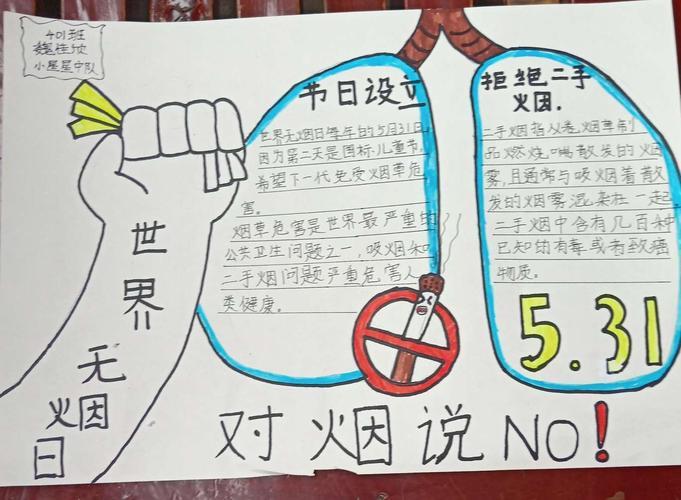 401班
魏佳欣
小星星中队
世界
无
烟
日
节日设立
世界无烟日每年的5月31日
因为第二天是国标儿童节,
希望下一代免受烟草危
害。
烟草危害是世界最严重的
公共卫生问题之一,吸烟和
二手烟问题严重危害人
类健康。
拒绝二手
烟.
二手烟指从卷烟草制
品燃烧端散发的烟
雾,且通常与吸烟着散
发的烟雾混杂在一起
二手烟中含有几百种
已知的有毒或者致癌
物质。
5.31
对烟说NO!